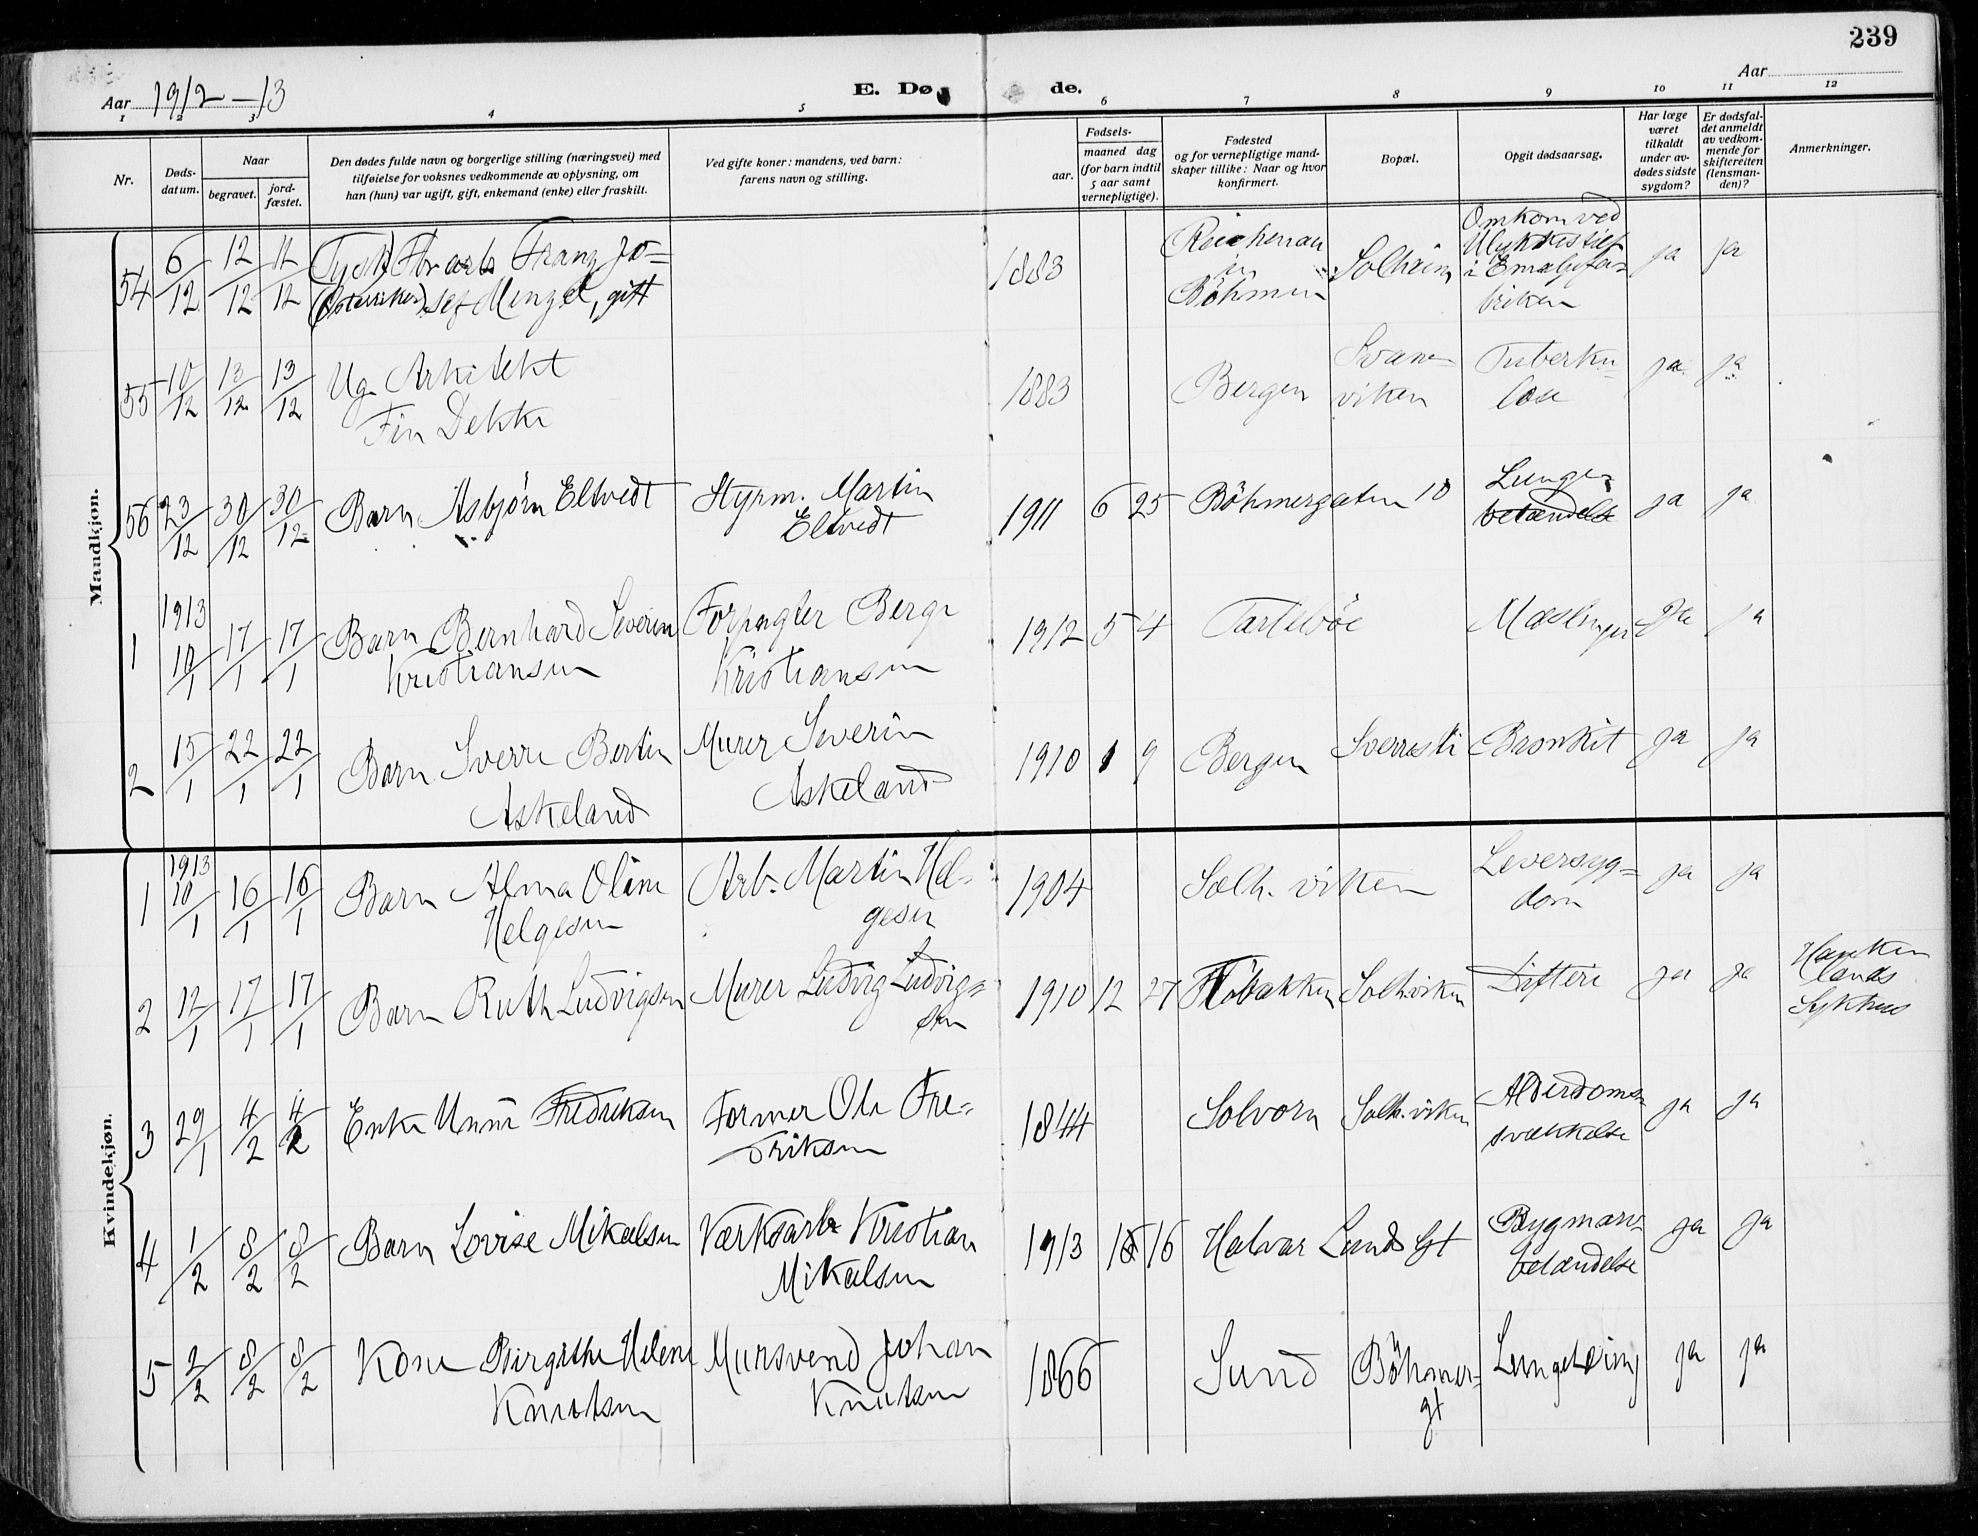 239
Aar 1912-13 E. Dø de. Aar
1 2 3 4 5 6 7 8 9 10 11 12
Nr.
Dødsdatum.
Naar
begravet.
jordfæstet.
Den dødes fulde navn og borgerlige stilling (næringsvei) med
tilføielse for voksnes vedkommende av oplysning, om
han (hun) var ugift, gift, enkemand (enke) eller fraskilt.
Ved gifte koner: mandens, ved barn:
farens navn og stilling.
Fødsels-
aar.
maaned dag
(for barn indtil
5 aar samt
vernepligtige).
Fødested
og for vernepligtige mand-
skaper tillike: Naar og hvor
konfirmert.
Bopæl.
Opgit dødsaarsag.
Har læge
været
tilkaldt
under av-
dødes sidste
sygdom?
Er dødsfal-
det anmeldt
av vedkom-
mende for
skifteretten
(lensman-
den)?
Anmerkninger.
Mandkjøn.
54 6/12 12/12 12/12 Franz Jo-
sef Menzel, gift 1883 Reichenau
in
Böhmen Solheim Omkom ved
Ulykkestilf
i Emaljefa-
briken ja ja
55 10/12 13/12 13/12 Ug. Arkitekt
Fin Dekke 1883 Bergen Svane-
viken Tuberku-
lose ja ja
56 23/12 30/12 30/12 Barn Asbjørn Eltvedt Styrm. Martin
Eltvedt 1911 6 25 Böhmergaten 10 Lunge-
betændelse ja ja
1913
1 10/1 17/1 17/1 Barn Bernhard Severin
Kristiansen Forpagter Berge
Kristiansen 1912 5 4 Tarleböe Mæslinger Ja ja
2 15/1 22/1 22/1 Barn Sverre Bertin
Askeland Murer Severin
Askeland 1910 1 9 Bergen Sverresti Bronkit ja ja
Kvindekjøn.
1913
1 10/1 16/1 16/1 Barn Alma Oline
Helgesen Arb. Martin Hel-
gesen 1904 Solh. viken Leversyg-
dom ja ja
2 12/1 17/1 17/1 Barn Ruth Ludvigsen Murer Ludvig Ludvig-
sen 1910 12 27 Solhviken Difteri ja ja Hauke-
lands
Sykhus
3 29/1 4/2 4/2 Enke Unni Fredriksen Former Ole Fre-
driksen 1844 Solvorn Solh. viken Alderdoms-
svækkelse ja ja
4 1/2 8/2 8/2 Barn Lovise Mikalsen Værksarb Kristian
Mikalsen 1913 16 Halvar Lunds gt Rygmarvs
betændelse ja ja
5 2/2 8/2 8/2 Kone Birgithe Helene
Knutsen Mursvend Johan
Knutsen 1866 Sund Böhmer-
gt ja ja